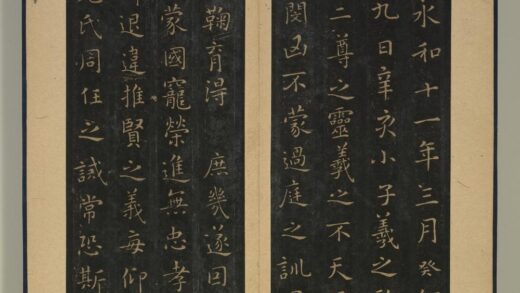 永和十一年三月癸卯
九日辛亥小子羲之敢
二尊之靈羲之不天
閔凶不蒙過庭之訓
鞠育得 庶幾遂因
蒙國寵榮進無忠孝
退違推賢之義每仰
氏周任之誡常恐斯